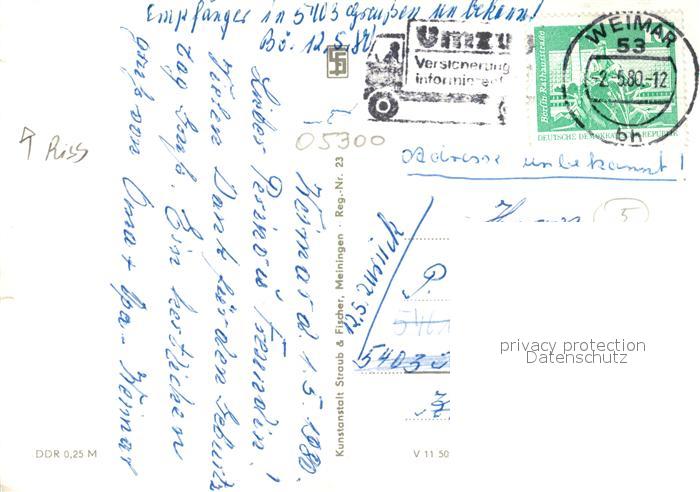 Empfänger in 5403 Greußen unbekannt
Bö. 12.5.80
Umzu
Versicherung
informiere!
WEIMAR
53
-2.-5.80.-12
bh
Berlin, Rathausstraße
DEUTSCHE DEMOKRATISCHE REPUBLIK
05300
Adresse unbekannt!
↑ Riss
5
Weimar d. 1.5.1980.
Lieber Freundin!
Vielen Dank für den Geburts
tag Ein herzlichen
gruß von Oma + Opa. Weimar
12.5. zurück
Kunstanstalt Straub & Fischer, Meiningen · Reg.-Nr. 23
P.
5401
5403
privacy protection
Datenschutz
DDR 0,25 M
V 11 50